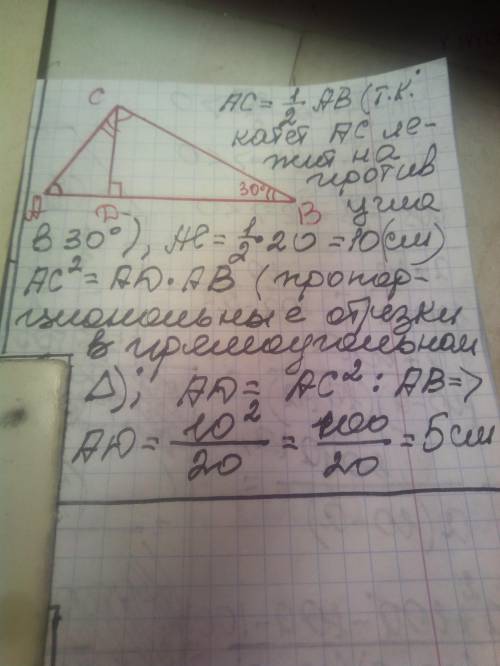 C
AC = 1/2 AB (т.к.
катет AC ле-
жит на
против
угла
30°
A
D
B
в 30°), AC = 1/2 · 20 = 10 (см)
AC² = AD · AB (пропор-
циональные отрезки
в прямоугольном
Δ); AD = AC² : AB =>
AD = 10²/20 = 100/20 = 5 см
7